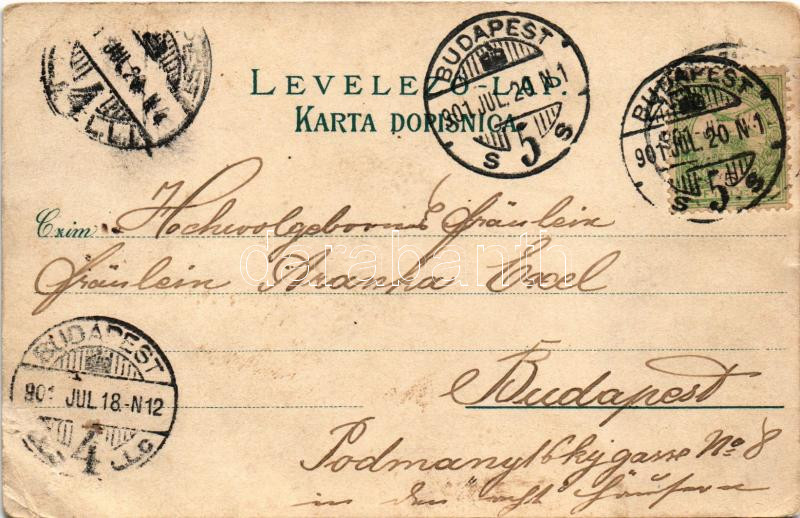 LEVELEZŐ-LAP.
KARTA DOPISNICA.
BUDAPEST
901 JUL. 20 N. 1
S 5 S
BUDAPEST
901 JUL. 20 N. 1
S 5. S
JUL. 20 N 4
4
Czim Hochwolgeborne Fräulein
Fräulein Aranka Oxel
darabanth
BUDAPEST
901 JUL 18.-N12
4
Budapest
Podmanytzkygasse No 8
in den acht Häusern